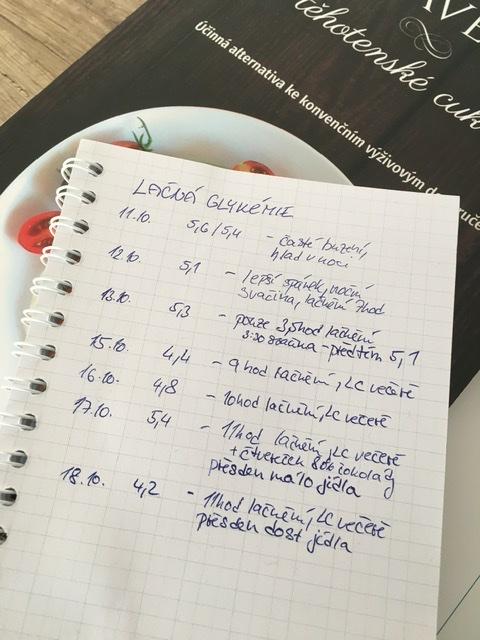 těhotenské cuk
Účinná alternativa ke konvenčním výživovým d ruče
LAČNÁ GLYKÉMIE
11.10. 5,6/5,4 - časté buzení,
hlad v noci
12.10. 5,1 - lepší spánek, noční
svačina, lačnění 7hod
13.10. 5,3 - pouze 3,5hod lačnění
3:30 svačina - předtím 5,1
15.10. 4,4 - 9hod lačnění, LC večeře
16.10. 4,8 - 10hod lačnění, LC večeře
17.10. 5,4 - 11hod lačnění, LC večeře
+ čtvereček 80% čokolády
přesden málo jídla
18.10. 4,2 - 11hod lačnění, LC večeře
přesden dost jídla